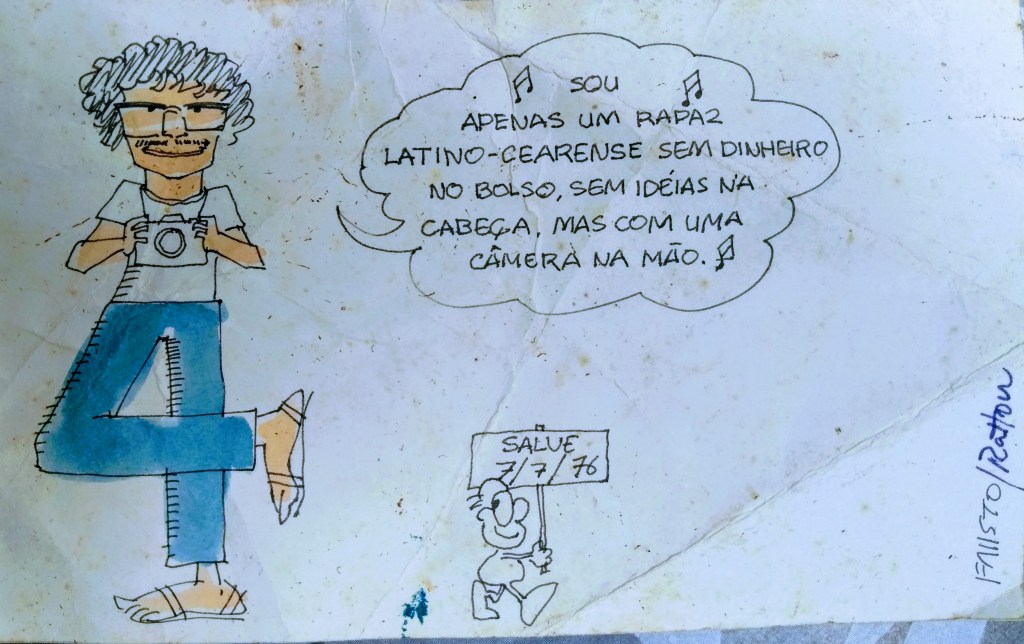 SOU
APENAS UM RAPAZ
LATINO-CEARENSE SEM DINHEIRO
NO BOLSO, SEM IDÉIAS NA
CABEÇA, MAS COM UMA
CÂMERA NA MÃO.
SALVE
7/7/76
FAUSTO/Ratton